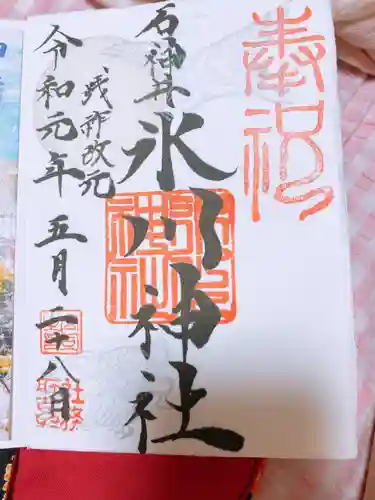 奉祝
石神井
氷川神社
践祚改元
令和元年
五月二十八日
社務